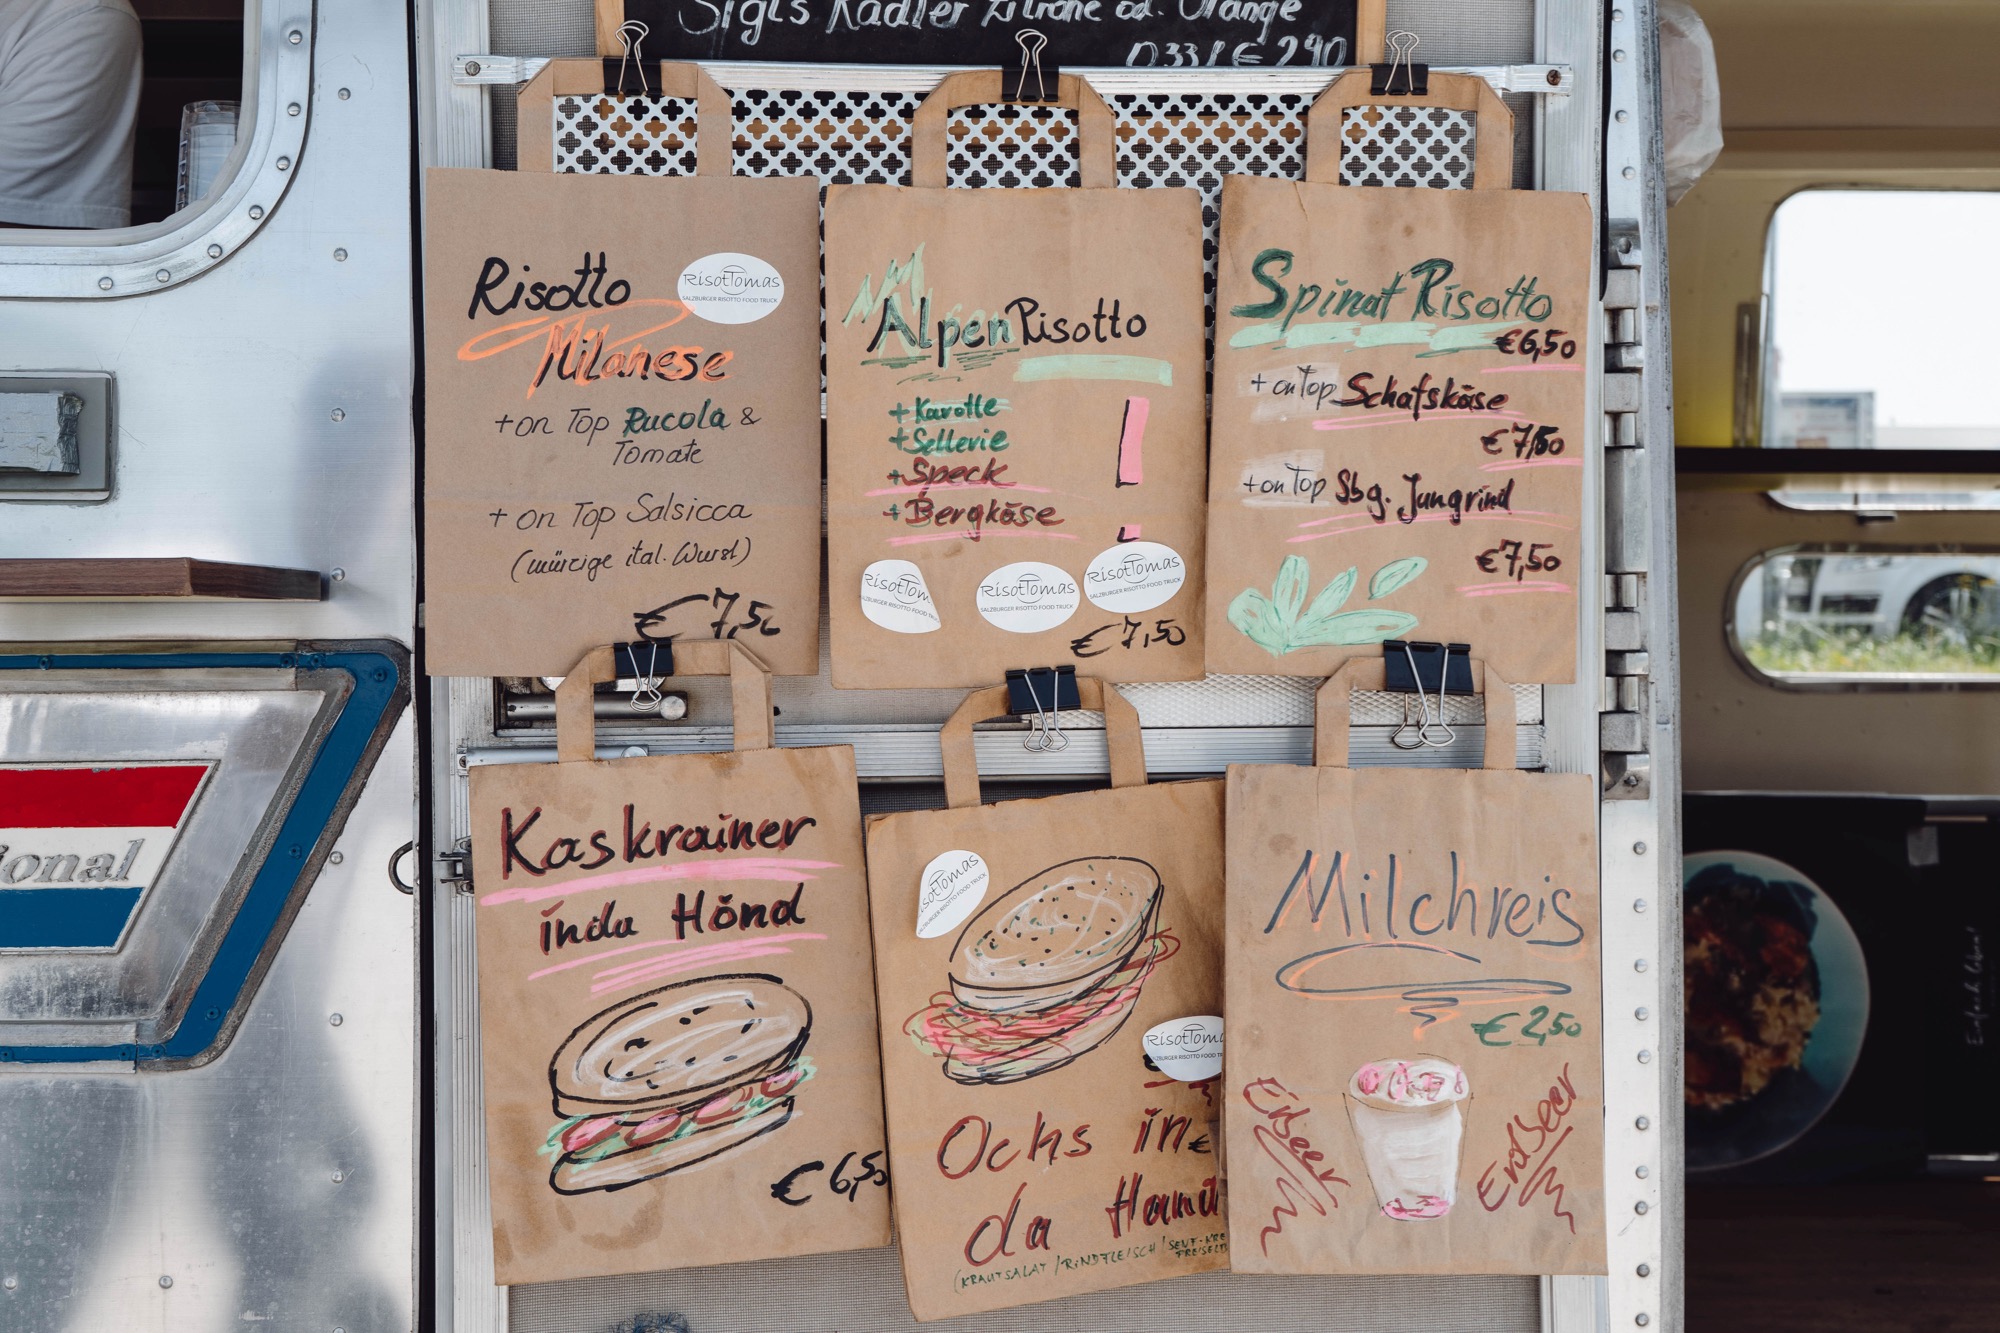 Sigls Radler Zitrone od. Orange
0,33 l € 2,90
Risotto
Milanese
RisotTomas
SALZBURGER RISOTTO FOOD TRUCK
+ on Top Rucola &
Tomate
+ on Top Salsicca
(würzige ital. Wurst)
€ 7,50
AlpenRisotto
+ Karotte
+ Sellerie
+ Speck
+ Bergkäse
!
RisotTom
SALZBURGER RISOTTO FOOD TRUC
RisotTomas
SALZBURGER RISOTTO FOOD TRUCK
RisotTomas
SALZBURGER RISOTTO FOOD TRUCK
€ 7,50
Spinat Risotto
€6,50
+ on Top Schafskäse
€ 7,50
+ on Top Sbg. Jungrind
€7,50
Kaskrainer
inda Hönd
€ 6,50
sotTomas
BURGER RISOTTO FOOD TRUCK
RisotTom
SALZBURGER RISOTTO FOOD TRU
Ochs in
€
da
(KRAUTSALAT / RINDFLEISCH / SENF-KRE
PREISELB
Milchreis
€ 2,50
Erdbeer
Erdbeer
ional
Einfach leben!